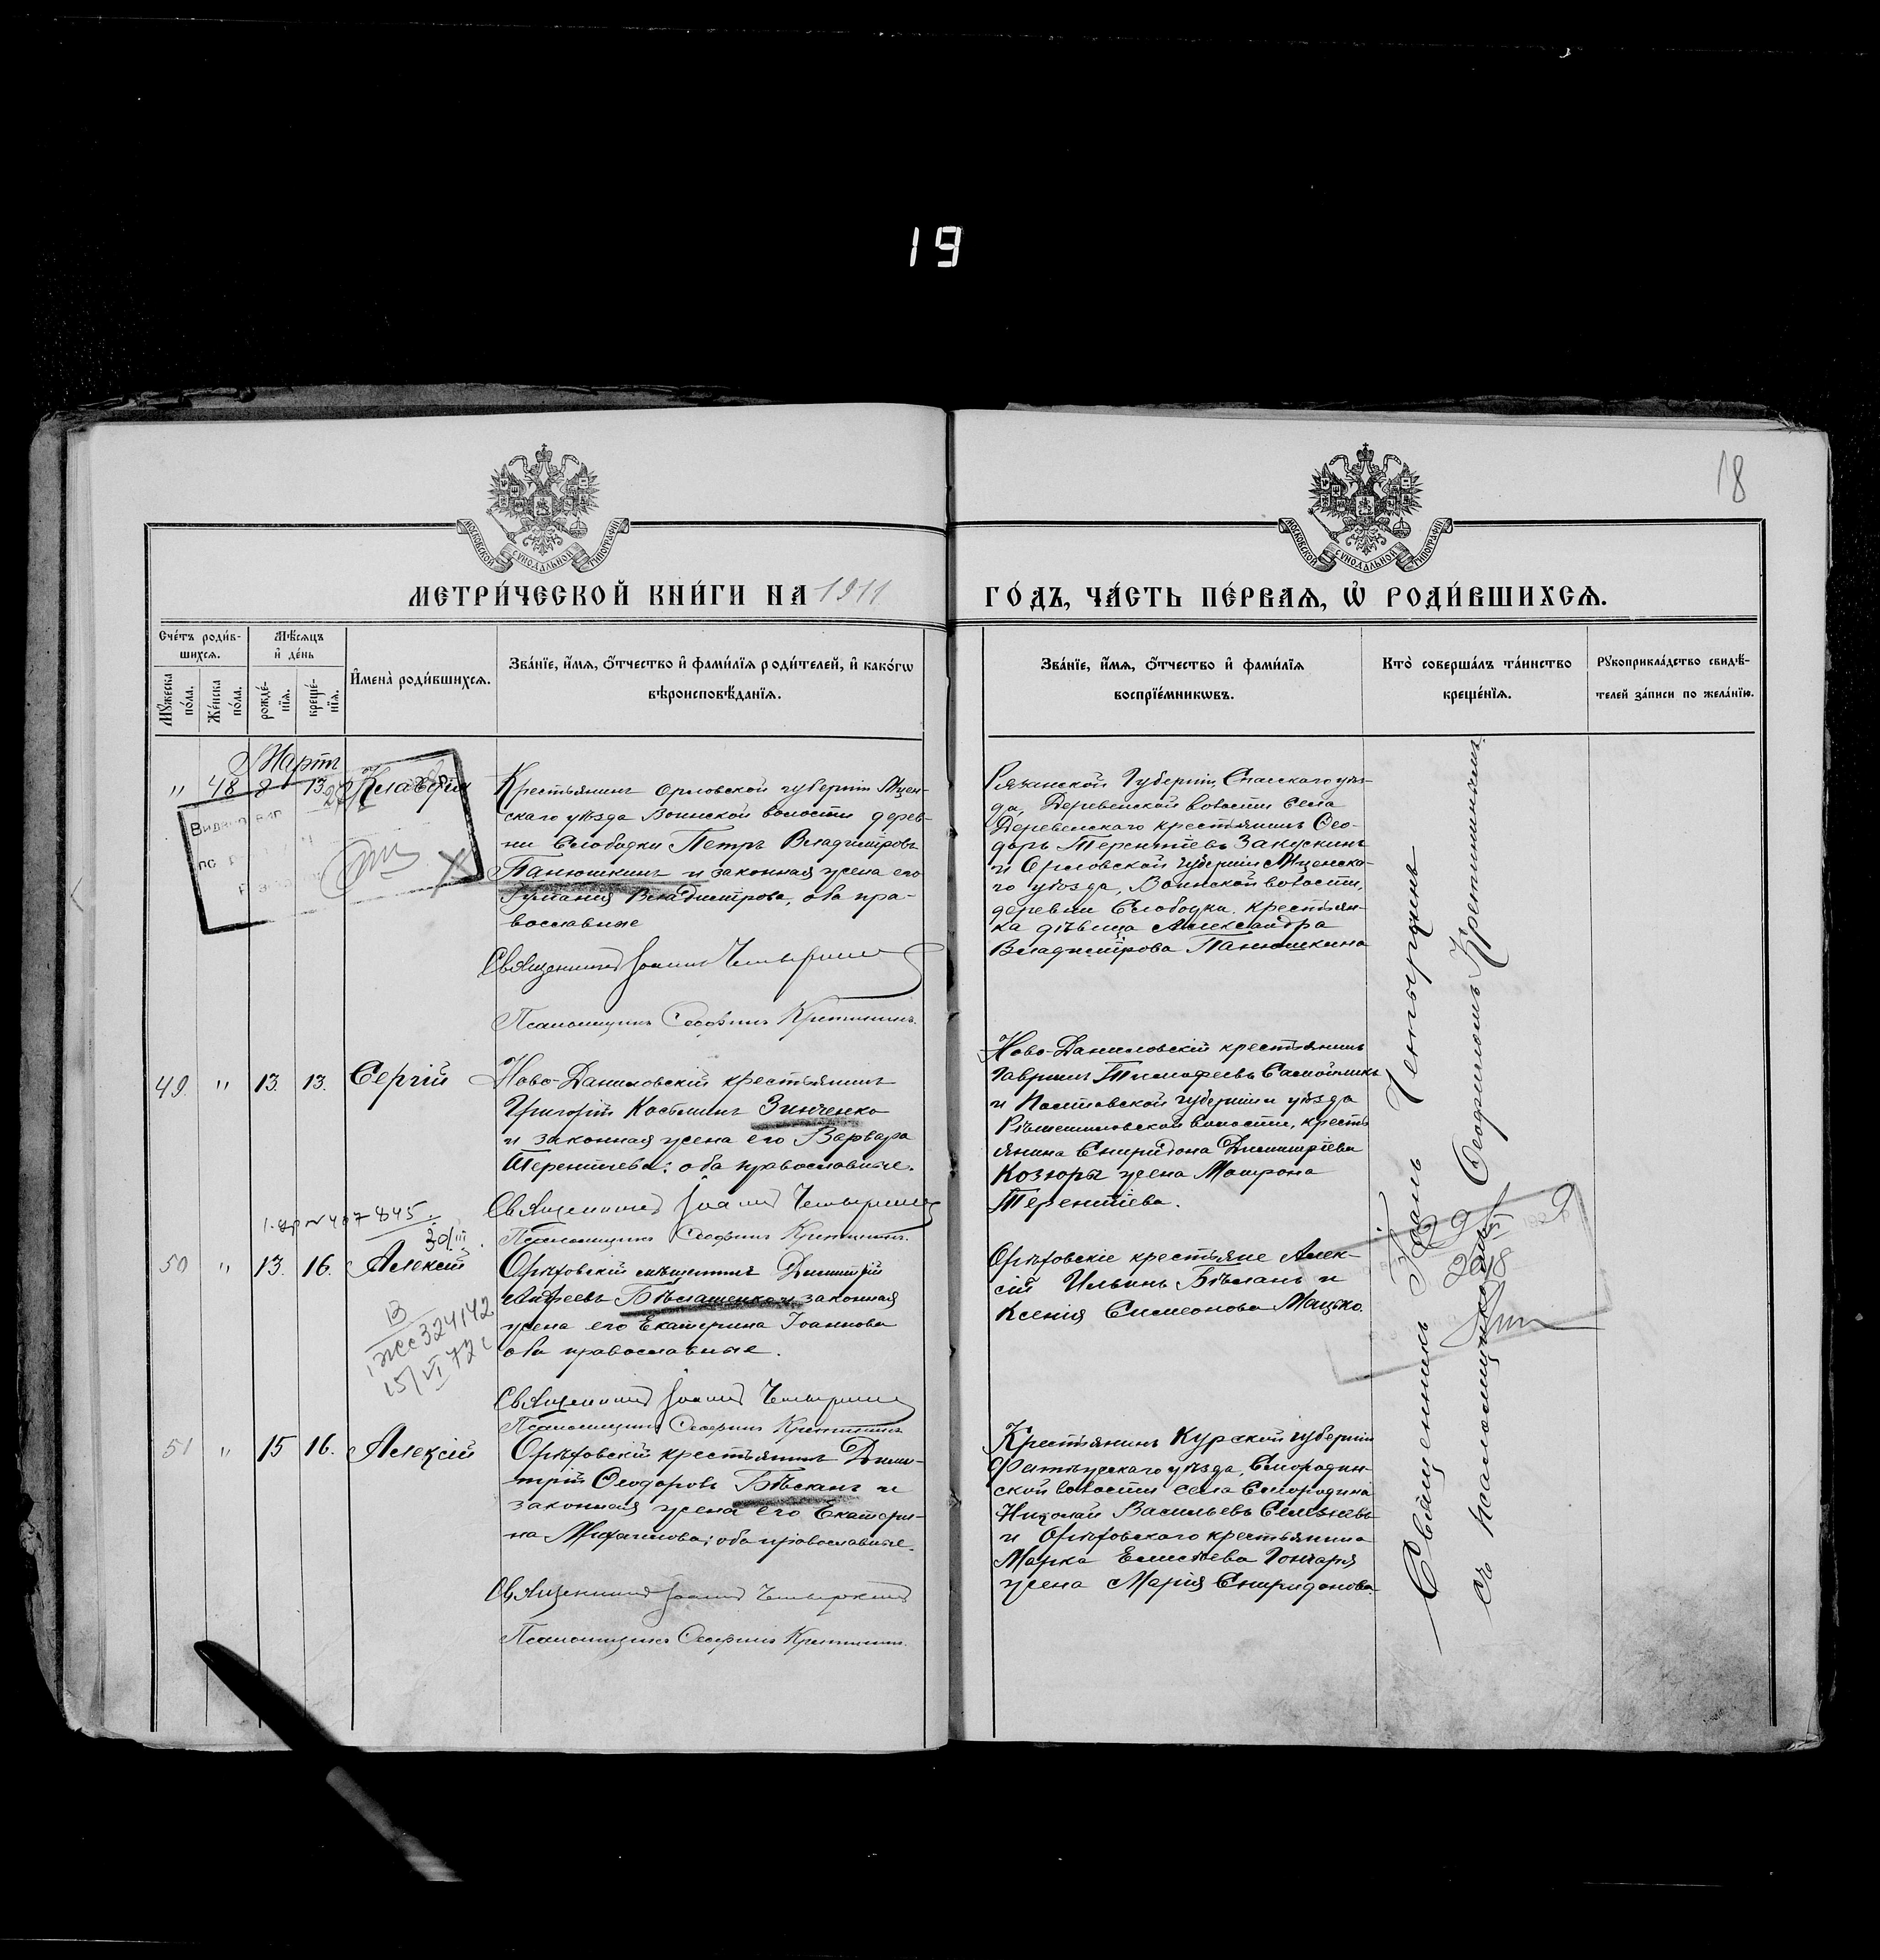 19
18
МОСКОВСКОЙ СѴНОДАЛЬНОЙ ТИПОГРАФІИ
МОСКОВСКОЙ СѴНОДАЛЬНОЙ ТИПОГРАФІИ
МЕТРИ́ЧЕСКОЙ КНИ́ГИ НА 1911
ГО́ДЪ, ЧА́СТЬ ПЕ́РВАѦ, Ѽ РОДИ́ВШИХСѦ.
Сче́тъ роди́в-
шихсѧ.
Мꙋ́жеска
по́ла.
Же́нска
по́ла.
Мѣ́сѧцъ
и҆ де́нь
рожде́-
нїѧ.
креще́-
нїѧ.
И҆мена̀ роди́вшихсѧ.
Зва́нїе, и҆́мѧ, ѻ҆́тчество и҆ фами́лїѧ роди́телей, и҆ како́гѡ
вѣроисповѣ́данїѧ.
Зва́нїе, и҆́мѧ, ѻ҆́тчество и҆ фами́лїѧ
воспрїе́мникѡвъ.
Кто̀ соверша́лъ та́инство
креще́нїѧ.
Рꙋкоприкла́дство свидѣ́-
телей за́писи по жела́нїю.
Мартъ
" 48 8 13 Клавдія
Крестьянинъ Орловской губерніи Мцен-
скаго уѣзда Воинской волости дерев-
ни Слободки Петръ Владиміровъ
Панюшкинъ и законная жена его
Владимірова, оба пра-
вославные
Священникъ Іоаннъ Четыркинъ
Псаломщикъ Ѳеофилъ Кретининъ.
Рязанской Губерніи, Спасскаго уѣз-
да, Деревенской волости Села
Деревенскаго крестьянинъ Ѳео-
доръ Терентіевъ Закускинъ
и Орловской губерніи Мценска-
го уѣзда, Воинской волости,
деревни Слободки, крестьян-
ка дѣвица Александра
Владимірова Панюшкина
49. " 13. 13. Сергій
Ново-Даниловскій крестьянинъ
Григорій Косьминъ Зинченко
и законная жена его Варвара
Терентіева; оба православные.
Священникъ Іоаннъ Четыркинъ
Псаломщикъ Ѳеофилъ Кретининъ.
Ново-Даниловскій крестьянинъ
Гавріилъ Тимофеевъ
и Полтавской губерніи и уѣзда
волости, кресть
янина Спиридона Димитріева
Козюры жена Матрона
Терентіева.
407845
30/III
50 " 13. 16. Алексій
Орѣховскій мѣщанинъ Димитрій
Андреевъ Бѣлашенко и законная
жена его Екатерина Іоаннова
оба православные.
Священникъ Іоаннъ Четыркинъ
Псаломщикъ Ѳеофилъ Кретининъ
Орѣховскіе крестьяне Алек-
сій Ильинъ Бѣланъ и
Ксенія Симеонова Мацько.
324142
15/VI 72
51 " 15 16. Алексій
Орѣховскій крестьянинъ Дими-
трій Ѳеодоровъ Бѣсканъ и
законная жена его Екатери-
на Михаилова; оба православные.
Священникъ Іоаннъ Четыркинъ
Псаломщикъ Ѳеофилъ Кретининъ.
Крестьянинъ Курской губерніи
Фатѣжскаго уѣзда, Смородин-
ской волости села Смородина
Николай Васильевъ Селезневъ
и Орѣховскаго крестьянина
Марка Елисѣева Гончаря
жена Марія Спиридонова.
Священникъ Іоаннъ Четыркинъ
съ псаломщикомъ Ѳеофиломъ Кретининымъ.